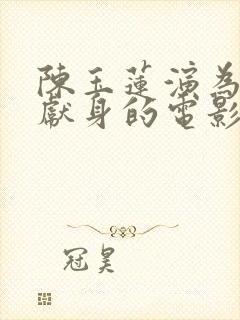 陳玉蓮演為
獻身的電影
冠昊